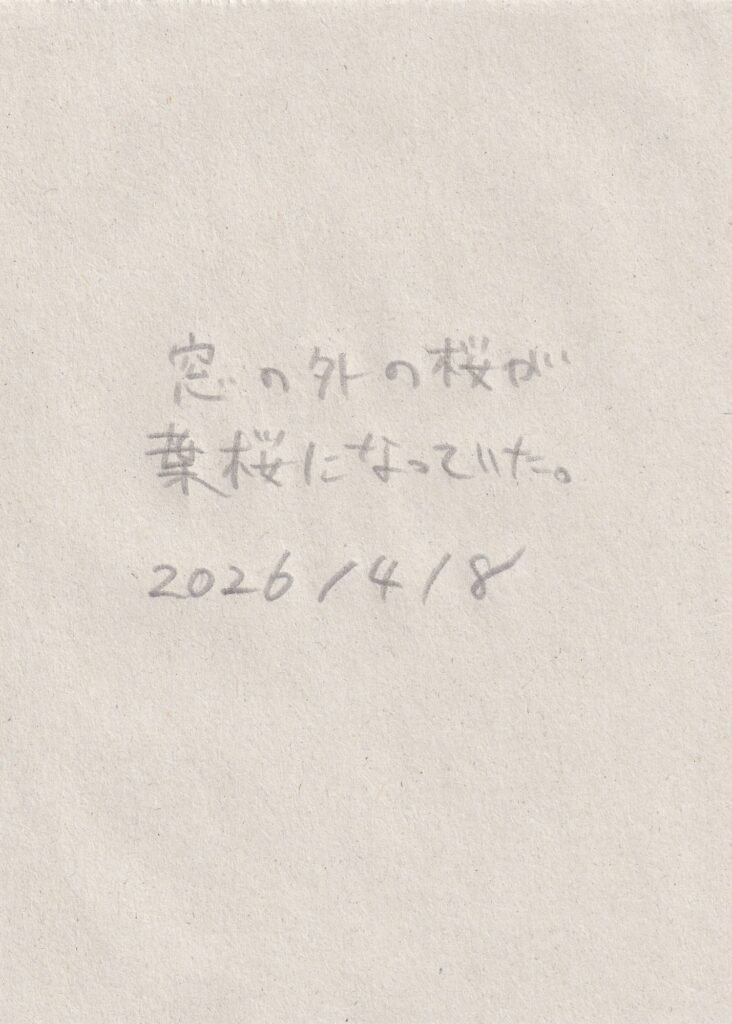 窓の外の桜が
葉桜になっていた。
2026/4/8